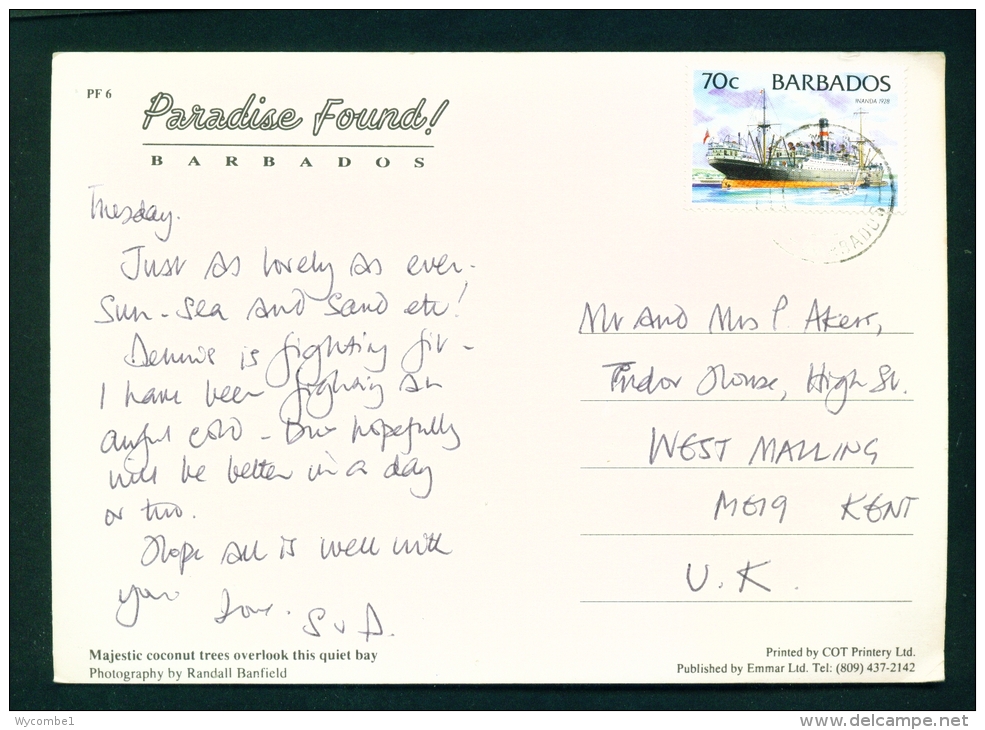 PF 6
Paradise Found!
BARBADOS
70c BARBADOS
INANDA 1928
Tuesday.
Just as lovely as ever.
Sun - Sea and Sand etc!
Dennis is fighting fit -
I have been fighting an
awful cold - but hopefully
will be better in a day
or two.
Hope all is well with
you
Love. S & D.
Mr and Mrs P. Akers,
Tudor House, High St.
WEST MALLING
ME19 KENT
U.K.
Majestic coconut trees overlook this quiet bay
Photography by Randall Banfield
Printed by COT Printery Ltd.
Published by Emmar Ltd. Tel: (809) 437-2142
Wycombe1
www.delcampe.net